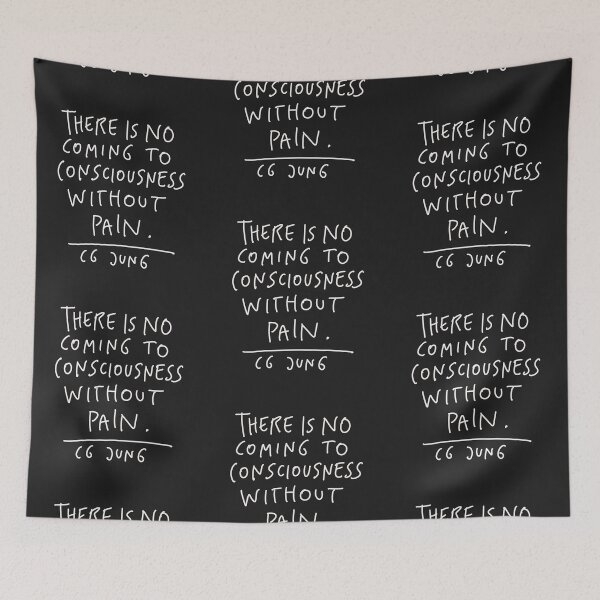 THERE IS NO
COMING TO
CONSCIOUSNESS
WITHOUT
PAIN.
CG JUNG
THERE IS NO
COMING TO
CONSCIOUSNESS
WITHOUT
PAIN.
CG JUNG
THERE IS NO
CONSCIOUSNESS
WITHOUT
PAIN.
CG JUNG
THERE IS NO
COMING TO
CONSCIOUSNESS
WITHOUT
PAIN.
CG JUNG
THERE IS NO
COMING TO
CONSCIOUSNESS
WITHOUT
PAIN
THERE IS NO
COMING TO
CONSCIOUSNESS
WITHOUT
PAIN.
CG JUNG
THERE IS NO
COMING TO
CONSCIOUSNESS
WITHOUT
PAIN.
CG JUNG
THERE IS NO